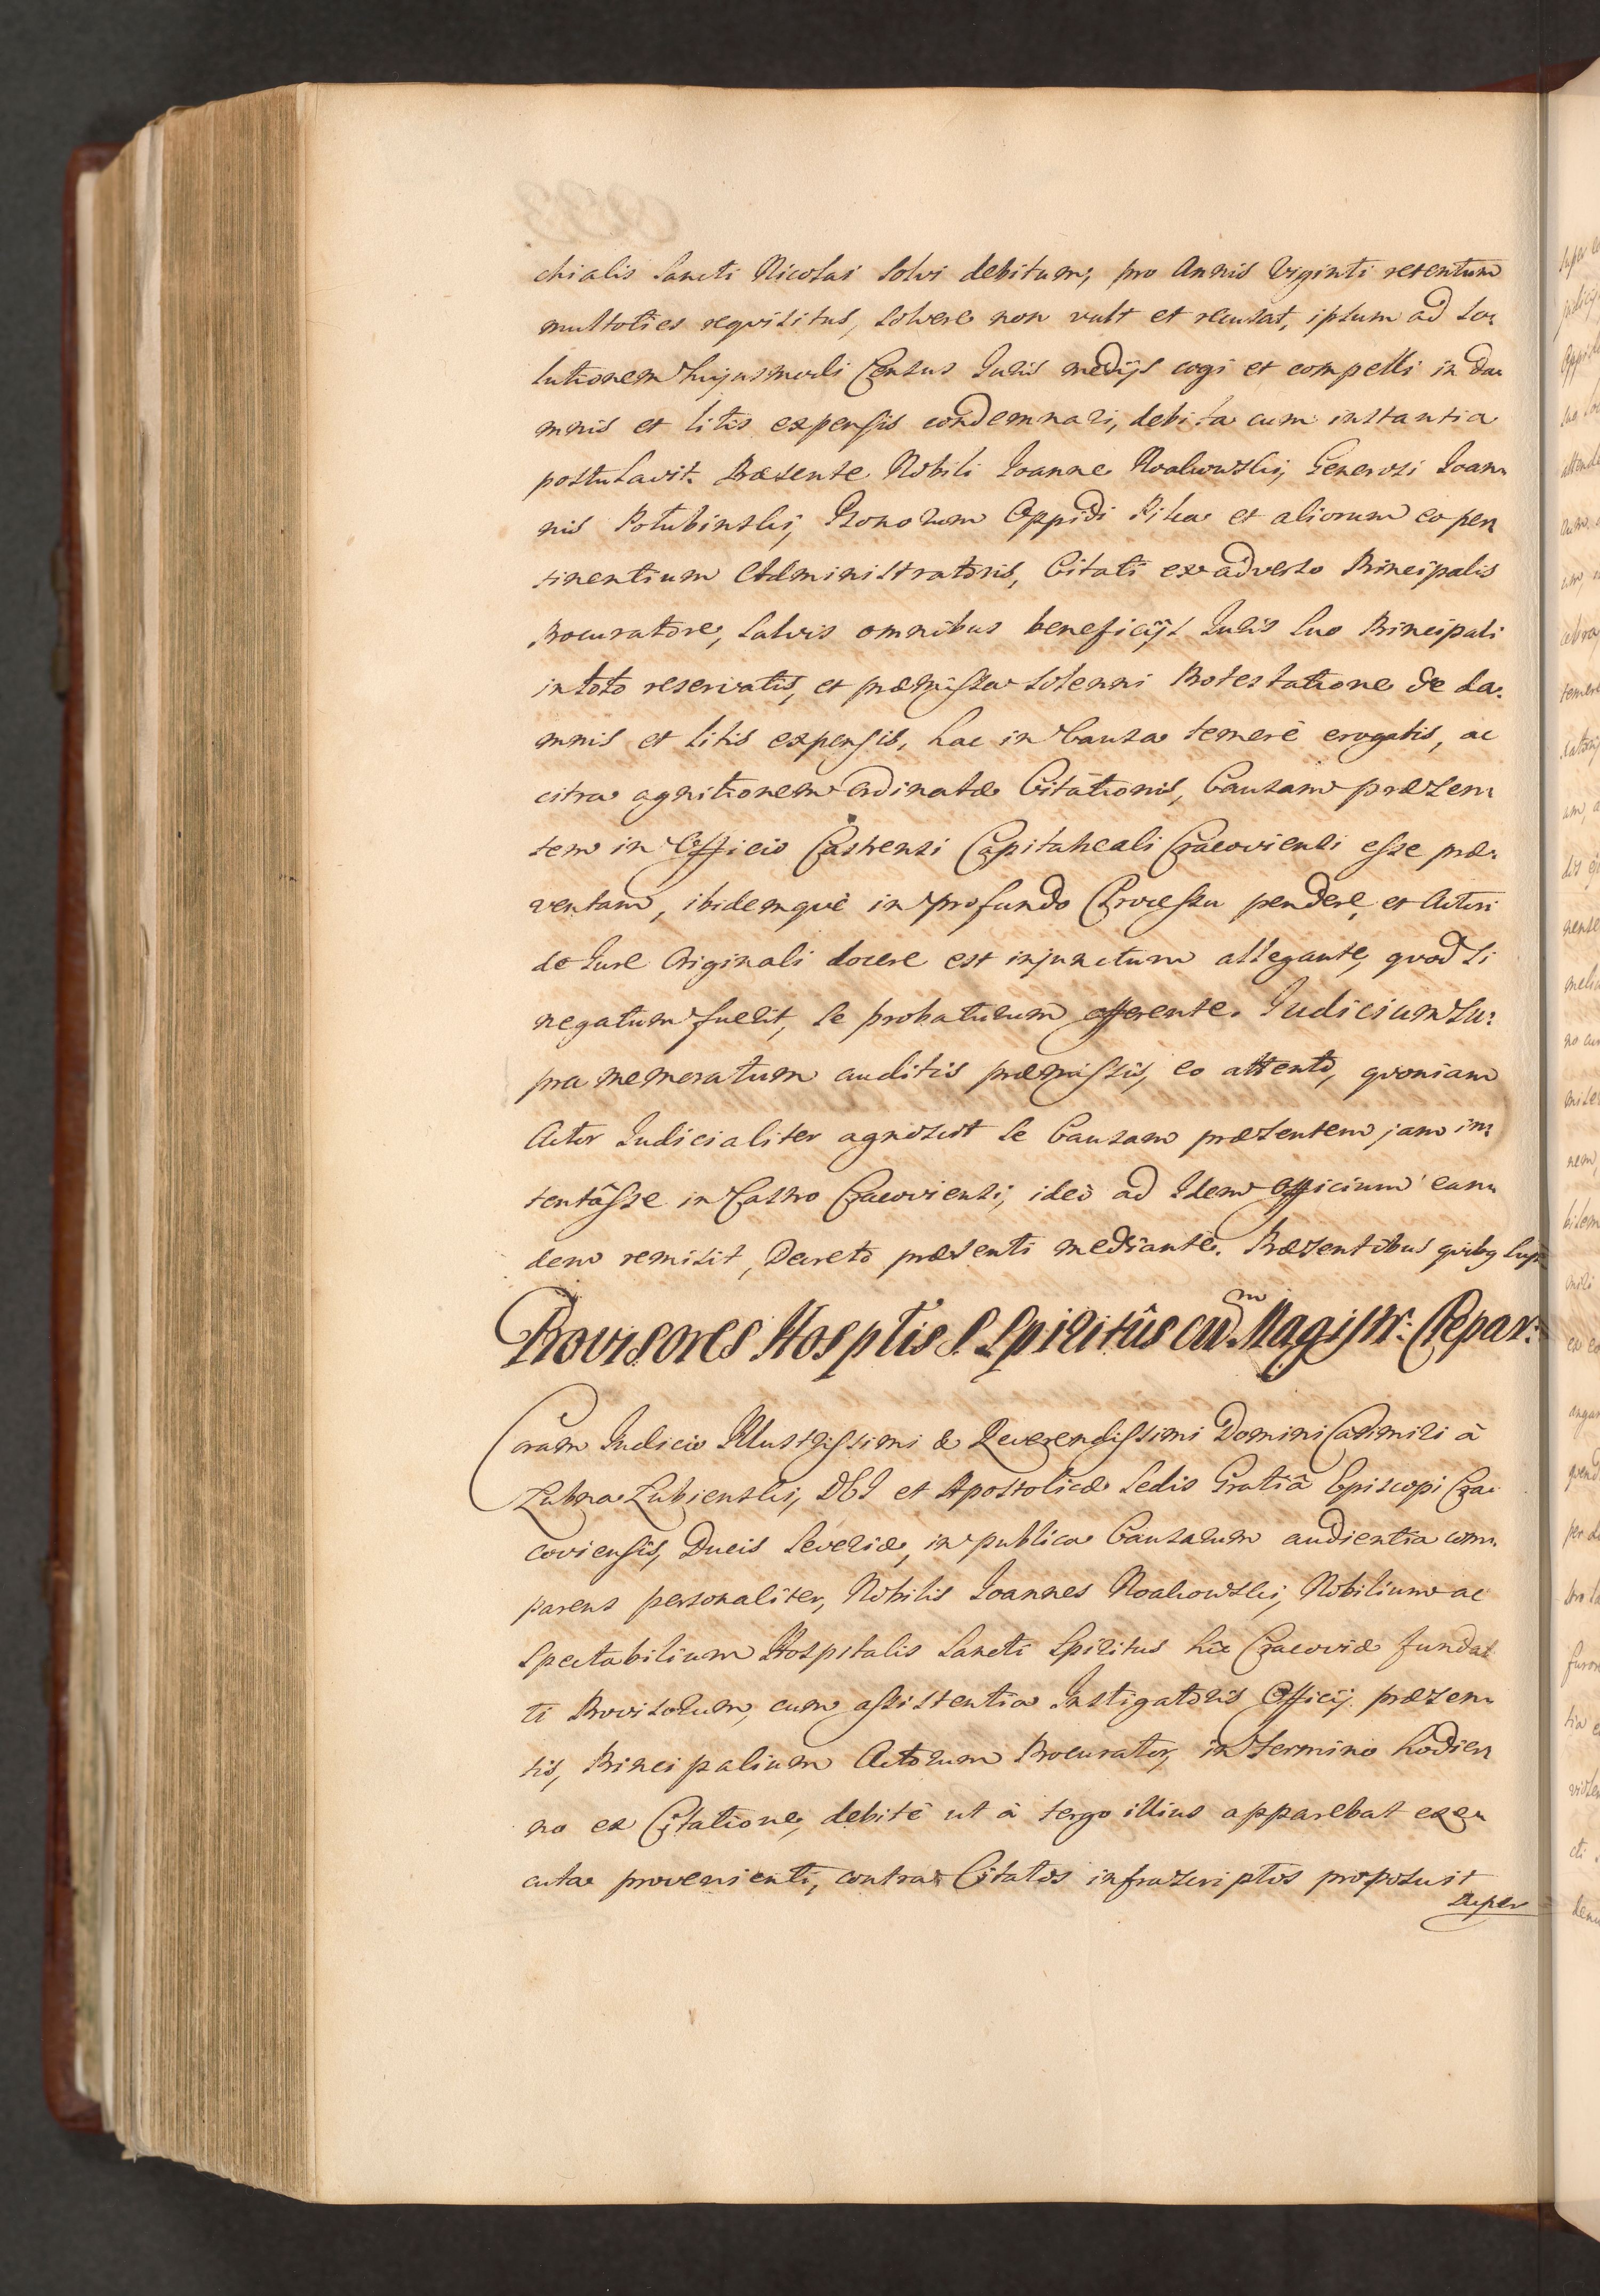 chialis Sancti Nicolai Solvi debitum, pro Annis Viginti retentum
multoties reqvisitus, solvere non vult et recusat, ipsum ad So-
lutionem hujusmodi Census Juris medijs cogi et compelli in da-
mnis et litis expensis condemnari, debita cum instantia
postulavit. Præsente Nobili Joanne Noakowski, Generosi Joan-
nis Potubinski, Bonorum Oppidi Pilca et aliorum eo per-
tinentium Administratoris, Citati ex adverso Principalis
Procuratore, Salvis omnibus beneficijs Juris Suo Principali
in toto reservatis, et præmissa Solenni Protestatione de da-
mnis et litis expensis, hac in Causa temerè erogatis, ac
citra agnitionem Ordinatæ Citationis, Causam præsen-
tem in Officio Castrensi Capitaneali Cracoviensi esse præ-
ventam, ibidemquè in profundo Processu pendere, et Actori
de Jure Originali docere est injunctum allegante, qvod Si
negatum fuerit, Se probaturum offerente. Judicium Su-
pra memoratum auditis præmissis, eo attento, qvoniam
Actor Judicialiter agnovit Se Causam præsentem jam in-
tentâsse in Castro Cracoviensi, ideò ad Idem Officium ean-
dem remisit, Decreto præsenti mediante. Præsentibus qvibus Supra
Provisores Hosptis S. Spiritûs cũ Magistr: Repar:
Coram Judicio Illustrissimi & Reverendissimi Domini Casimiri à
Lubna Lubienski, DEI et Apostolicæ Sedis Gratiâ Episcopi Cra-
coviensis, Ducis Severiæ, in publica Causarum audientia com-
parens personaliter, Nobilis Joannes Noakowski, Nobilium ac
Spectabilium Hospitalis Sancti Spiritus hic Cracoviæ funda-
ti Provisorum, cum assistentia Instigatoris Officij præsen-
tis, Principalium Actorum Procurator, in termino hodier-
no ex Citatione, debitè ut à tergo illius apparebat exe-
cuta provenienti, contra Citatos infrascriptos proposuit
Super